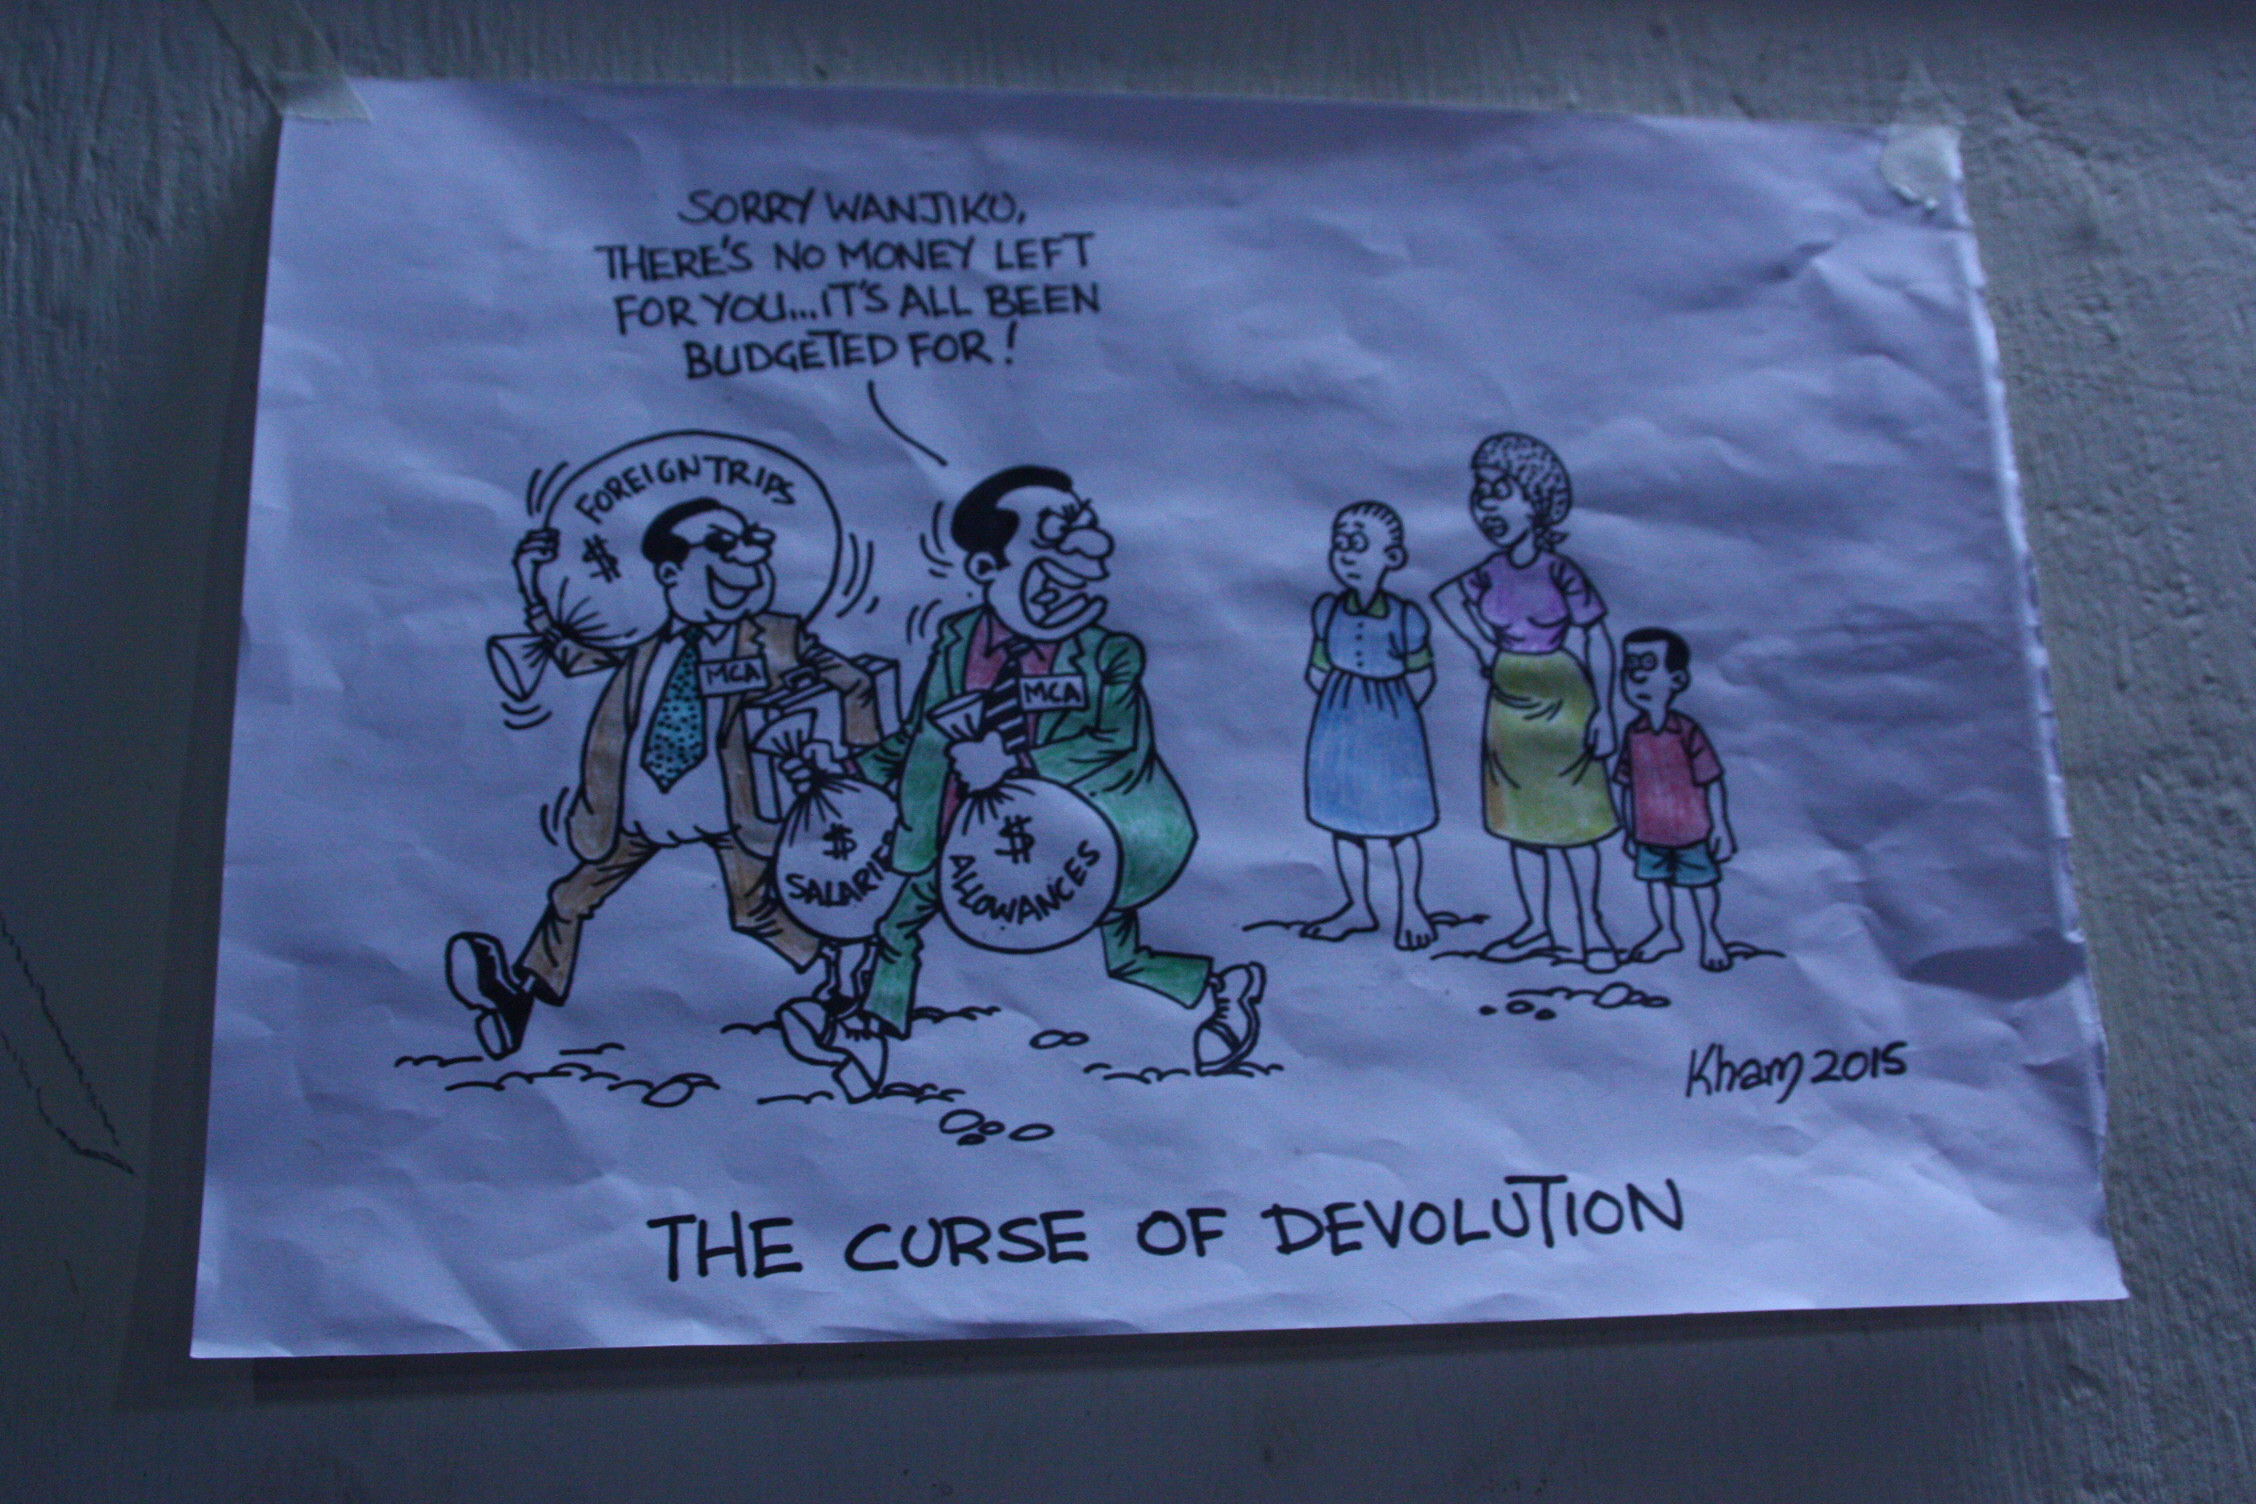 SORRY WANJIKU,
THERE'S NO MONEY LEFT
FOR YOU...IT'S ALL BEEN
BUDGETED FOR!
FOREIGN TRIPS
$
MCA
MCA
$
SALARIE
$
ALLOWANCES
Kham 2015
THE CURSE OF DEVOLUTION